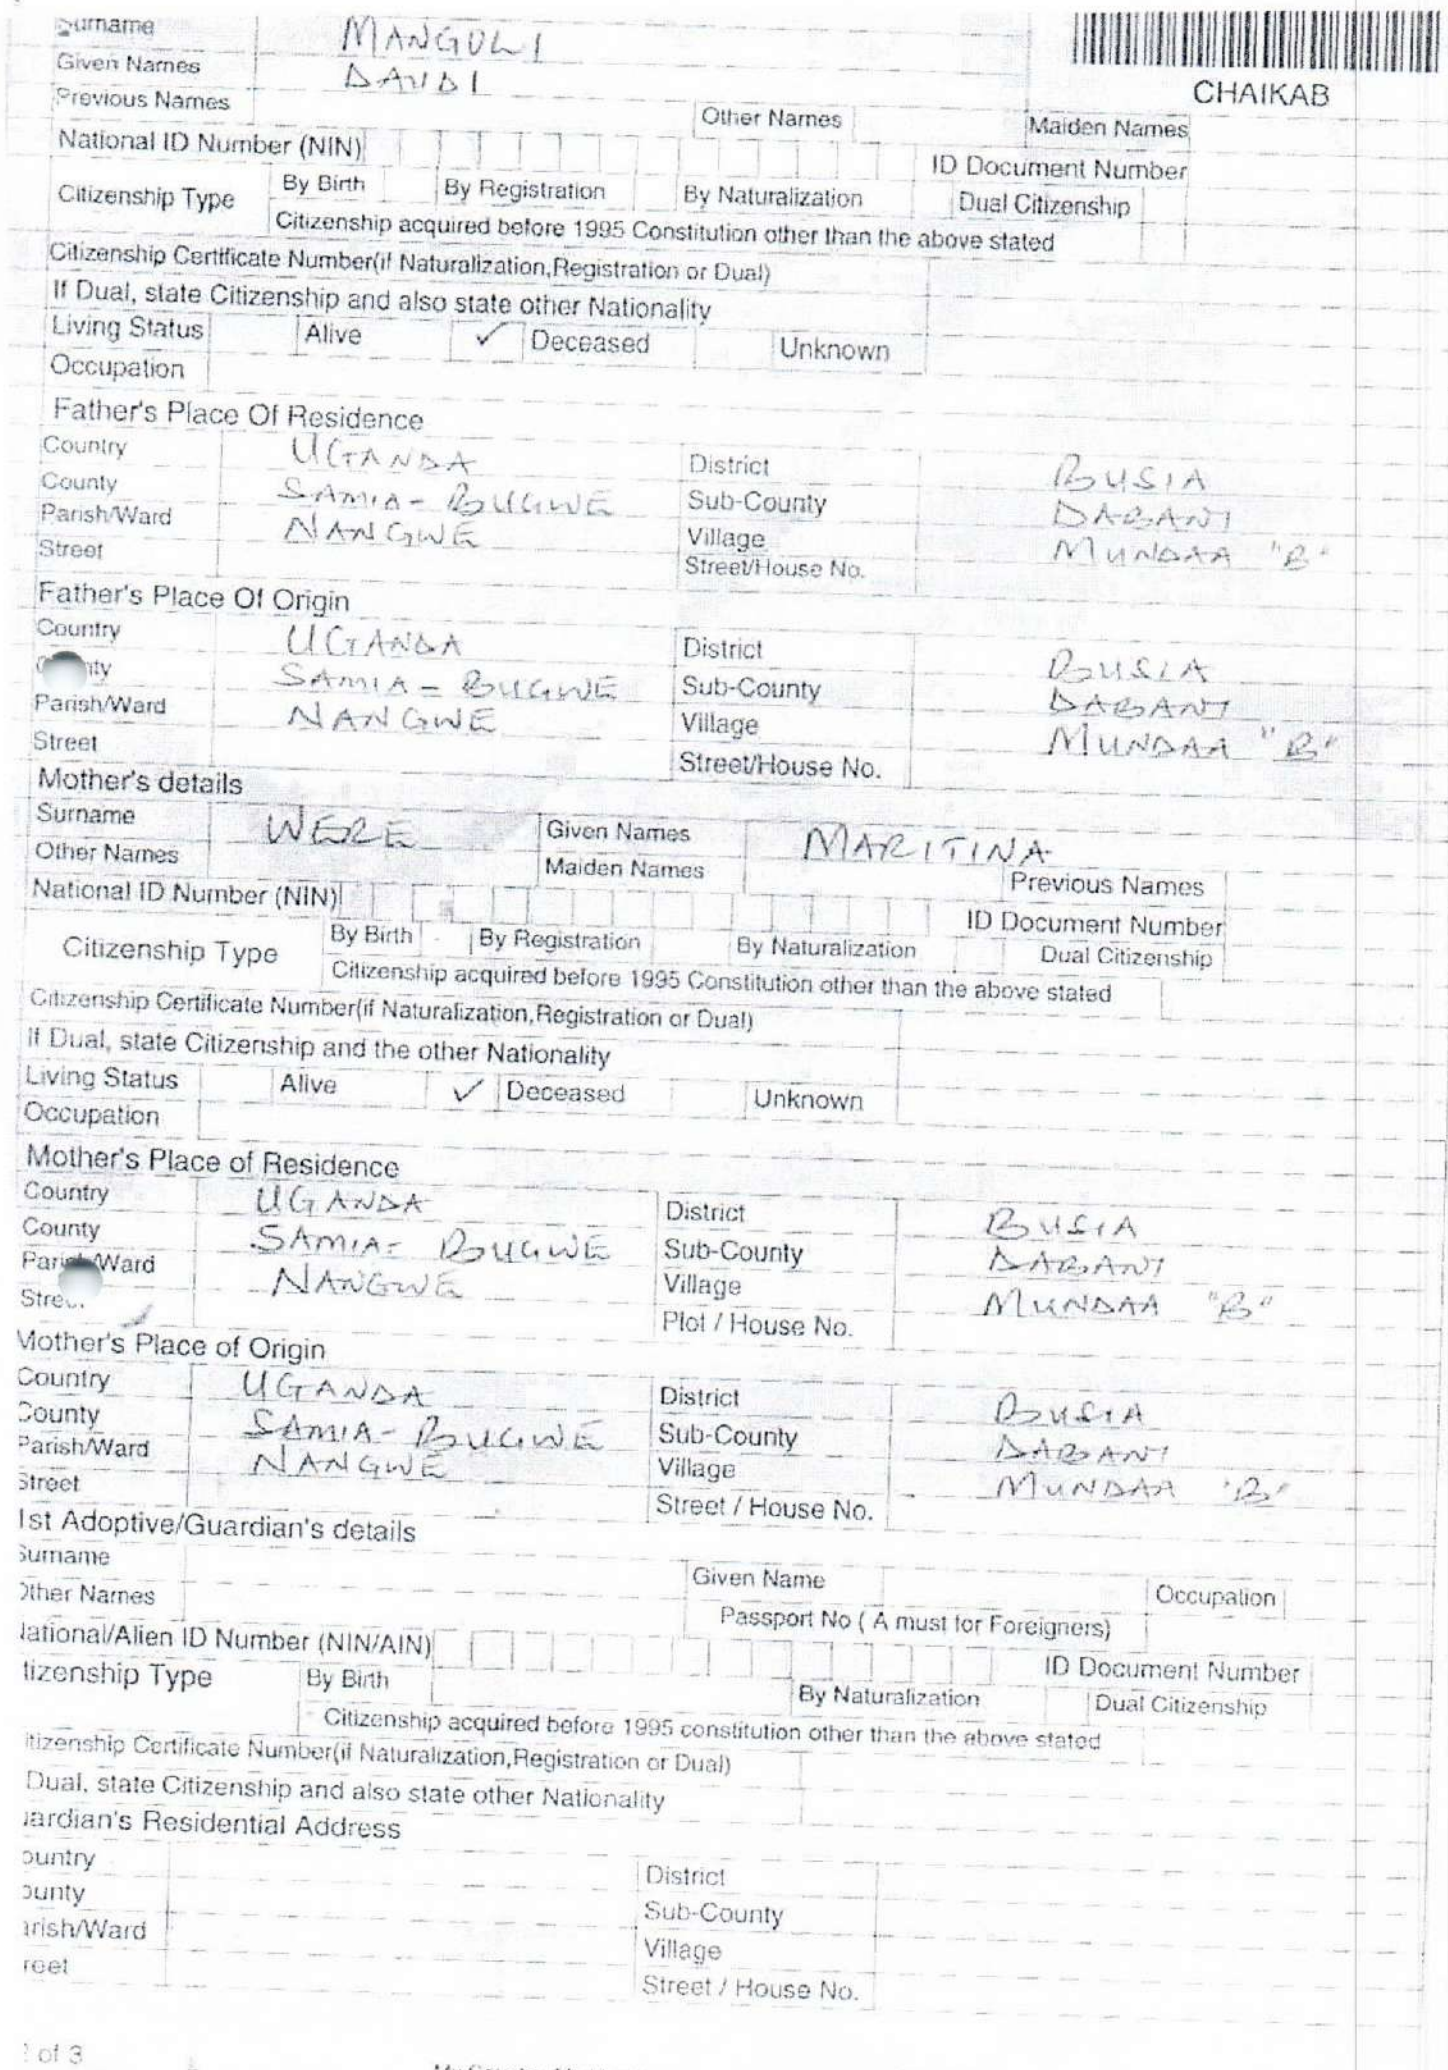 Surname MANGULI
Given Names DAUDI
CHAIKAB
Previous Names Other Names Maiden Names
National ID Number (NIN) ID Document Number
Citizenship Type By Birth By Registration By Naturalization Dual Citizenship
Citizenship acquired before 1995 Constitution other than the above stated
Citizenship Certificate Number(if Naturalization,Registration or Dual)
If Dual, state Citizenship and also state other Nationality
Living Status Alive ✓ Deceased Unknown
Occupation
Father's Place Of Residence
Country UGANDA District BUSIA
County SAMIA - BUGWE Sub-County DABANI
Parish/Ward NANGWE Village MUNDAA "B"
Street Street/House No.
Father's Place Of Origin
Country UGANDA District BUSIA
nty SAMIA - BUGWE Sub-County DABANI
Parish/Ward NANGWE Village MUNDAA "B"
Street Street/House No.
Mother's details
Surname WERE Given Names MARITINA
Other Names Maiden Names Previous Names
National ID Number (NIN) ID Document Number
Citizenship Type By Birth By Registration By Naturalization Dual Citizenship
Citizenship acquired before 1995 Constitution other than the above stated
Citizenship Certificate Number(if Naturalization,Registration or Dual)
If Dual, state Citizenship and the other Nationality
Living Status Alive ✓ Deceased Unknown
Occupation
Mother's Place of Residence
Country UGANDA District BUSIA
County SAMIA - BUGWE Sub-County DABANI
Pari Ward NANGWE Village MUNDAA "B"
Stre Plot / House No.
Mother's Place of Origin
Country UGANDA District BUSIA
County SAMIA - BUGWE Sub-County DABANI
Parish/Ward NANGWE Village MUNDAA 'B'
Street Street / House No.
1st Adoptive/Guardian's details
Surname Given Name Occupation
Other Names Passport No ( A must for Foreigners)
National/Alien ID Number (NIN/AIN) ID Document Number
tizenship Type By Birth By Naturalization Dual Citizenship
Citizenship acquired before 1995 constitution other than the above stated
itizenship Certificate Number(if Naturalization,Registration or Dual)
Dual, state Citizenship and also state other Nationality
uardian's Residential Address
ountry District
ounty Sub-County
arish/Ward Village
reet Street / House No.
2 of 3